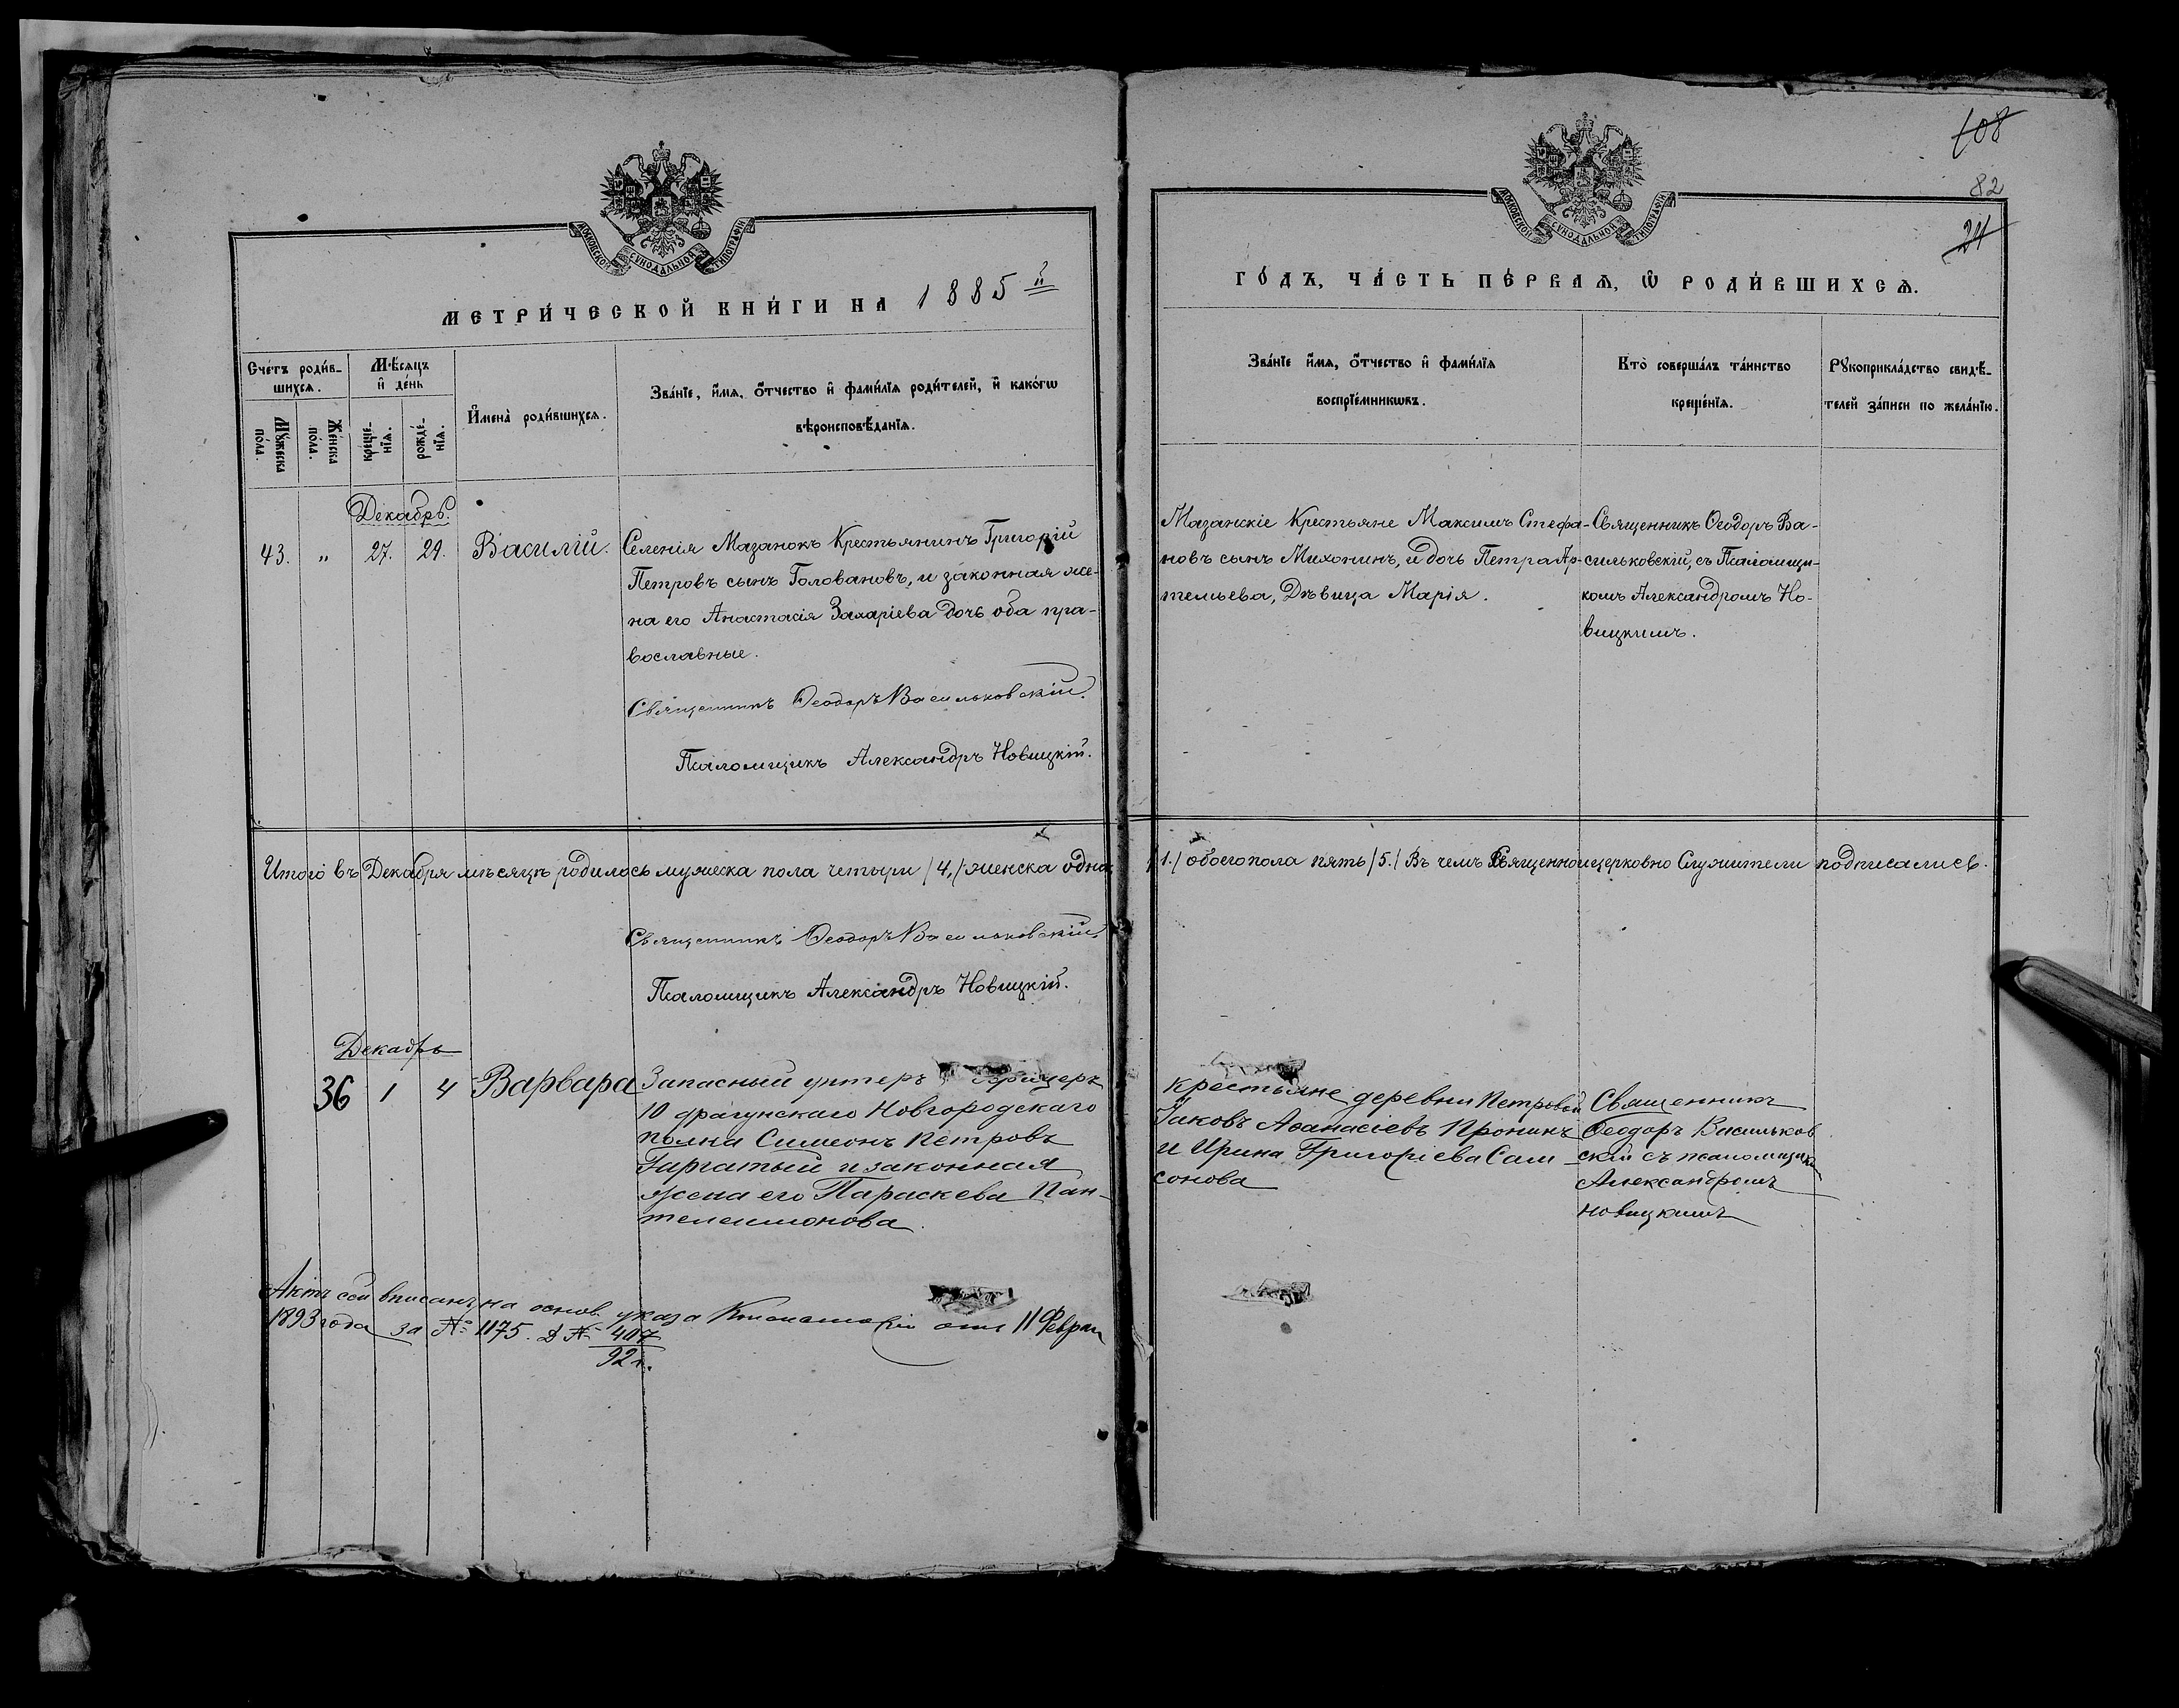 108
82
21
МОСКОВСКОЙ СУНОДАЛЬНОЙ ТИПОГРАФІИ
МЕТРИ́ЧЕСКОЙ КНИ́ГИ НА 1885й
Сче́тъ роди́в-
шихсѧ.
Мꙋ́жеска по́ла.
Же́нска по́ла.
Мѣ́сяцъ
и҆ де́нь
креще́-
нїѧ.
рожде́-
нїѧ.
И҆мена̀ роди́вшихсѧ.
Зва́нїе, и҆́мѧ, ѻ҆́тчество и҆ фами́лїѧ роди́телей, и҆ како́гѡ
вѣроисповѣ́данїѧ.
Декабрь.
43. " 27. 29. Василій.
Селенія Мазанокъ Крестьянинъ Григорій
Петровъ сынъ Головановъ, и законная же-
на его Анастасія Захаріева дочь оба пра-
вославные.
Священникъ Ѳеодоръ Васильковскій.
Псаломщикъ Александръ Новицкій.
Итого въ Декабря мѣсяцѣ родилось мужеска пола четыри /4,/ женска одна
Священникъ Ѳеодоръ Васильковскій
Псаломщикъ Александръ Новицкій.
Декабрь
36 1 4 Варвара
Запасный унтеръ Офицеръ
10 драгунскаго Новгородскаго
полка Симеонъ Петровъ
и законная
жена его Параскева Пан-
телеимонова
Актъ сей вписанъ на основ. указа Консисторіи отъ 11 Феврал
1893 года за № 1175. Д № 407
92 г.
МОСКОВСКОЙ СУНОДАЛЬНОЙ ТИПОГРАФІИ
ГО́ДЪ, ЧА́СТЬ ПЕ́РВАѦ, Ѡ҆ РОДИ́ВШИХСѦ.
Зва́нїе и҆́мѧ, ѻ҆́тчество и҆ фами́лїѧ
воспрїе́мникѡвъ.
Кто̀ соверша́лъ та́инство
креще́нїѧ.
Рꙋкоприкла́дство свидѣ́-
телей за́писи по жела́нїю.
Мазанскіе Крестьяне Максимъ Стефа-
новъ сынъ Михонинъ, и дочь Петра Ар-
темьева, Дѣвица Марія.
Священникъ Ѳеодоръ Ва-
сильковскій, съ Псаломщи-
комъ Александромъ Но-
вицкимъ.
/1./ обоего пола пять /5./ Въ чемъ Священно и церковно Служители подписались.
крестьяне деревни Петровой
Іаковъ Аѳанасіевъ Пронинъ
и Ирина Григоріева Сам
сонова
Священникъ
Ѳеодоръ Васильков
скій съ псаломщик
Александромъ
Новицкимъ